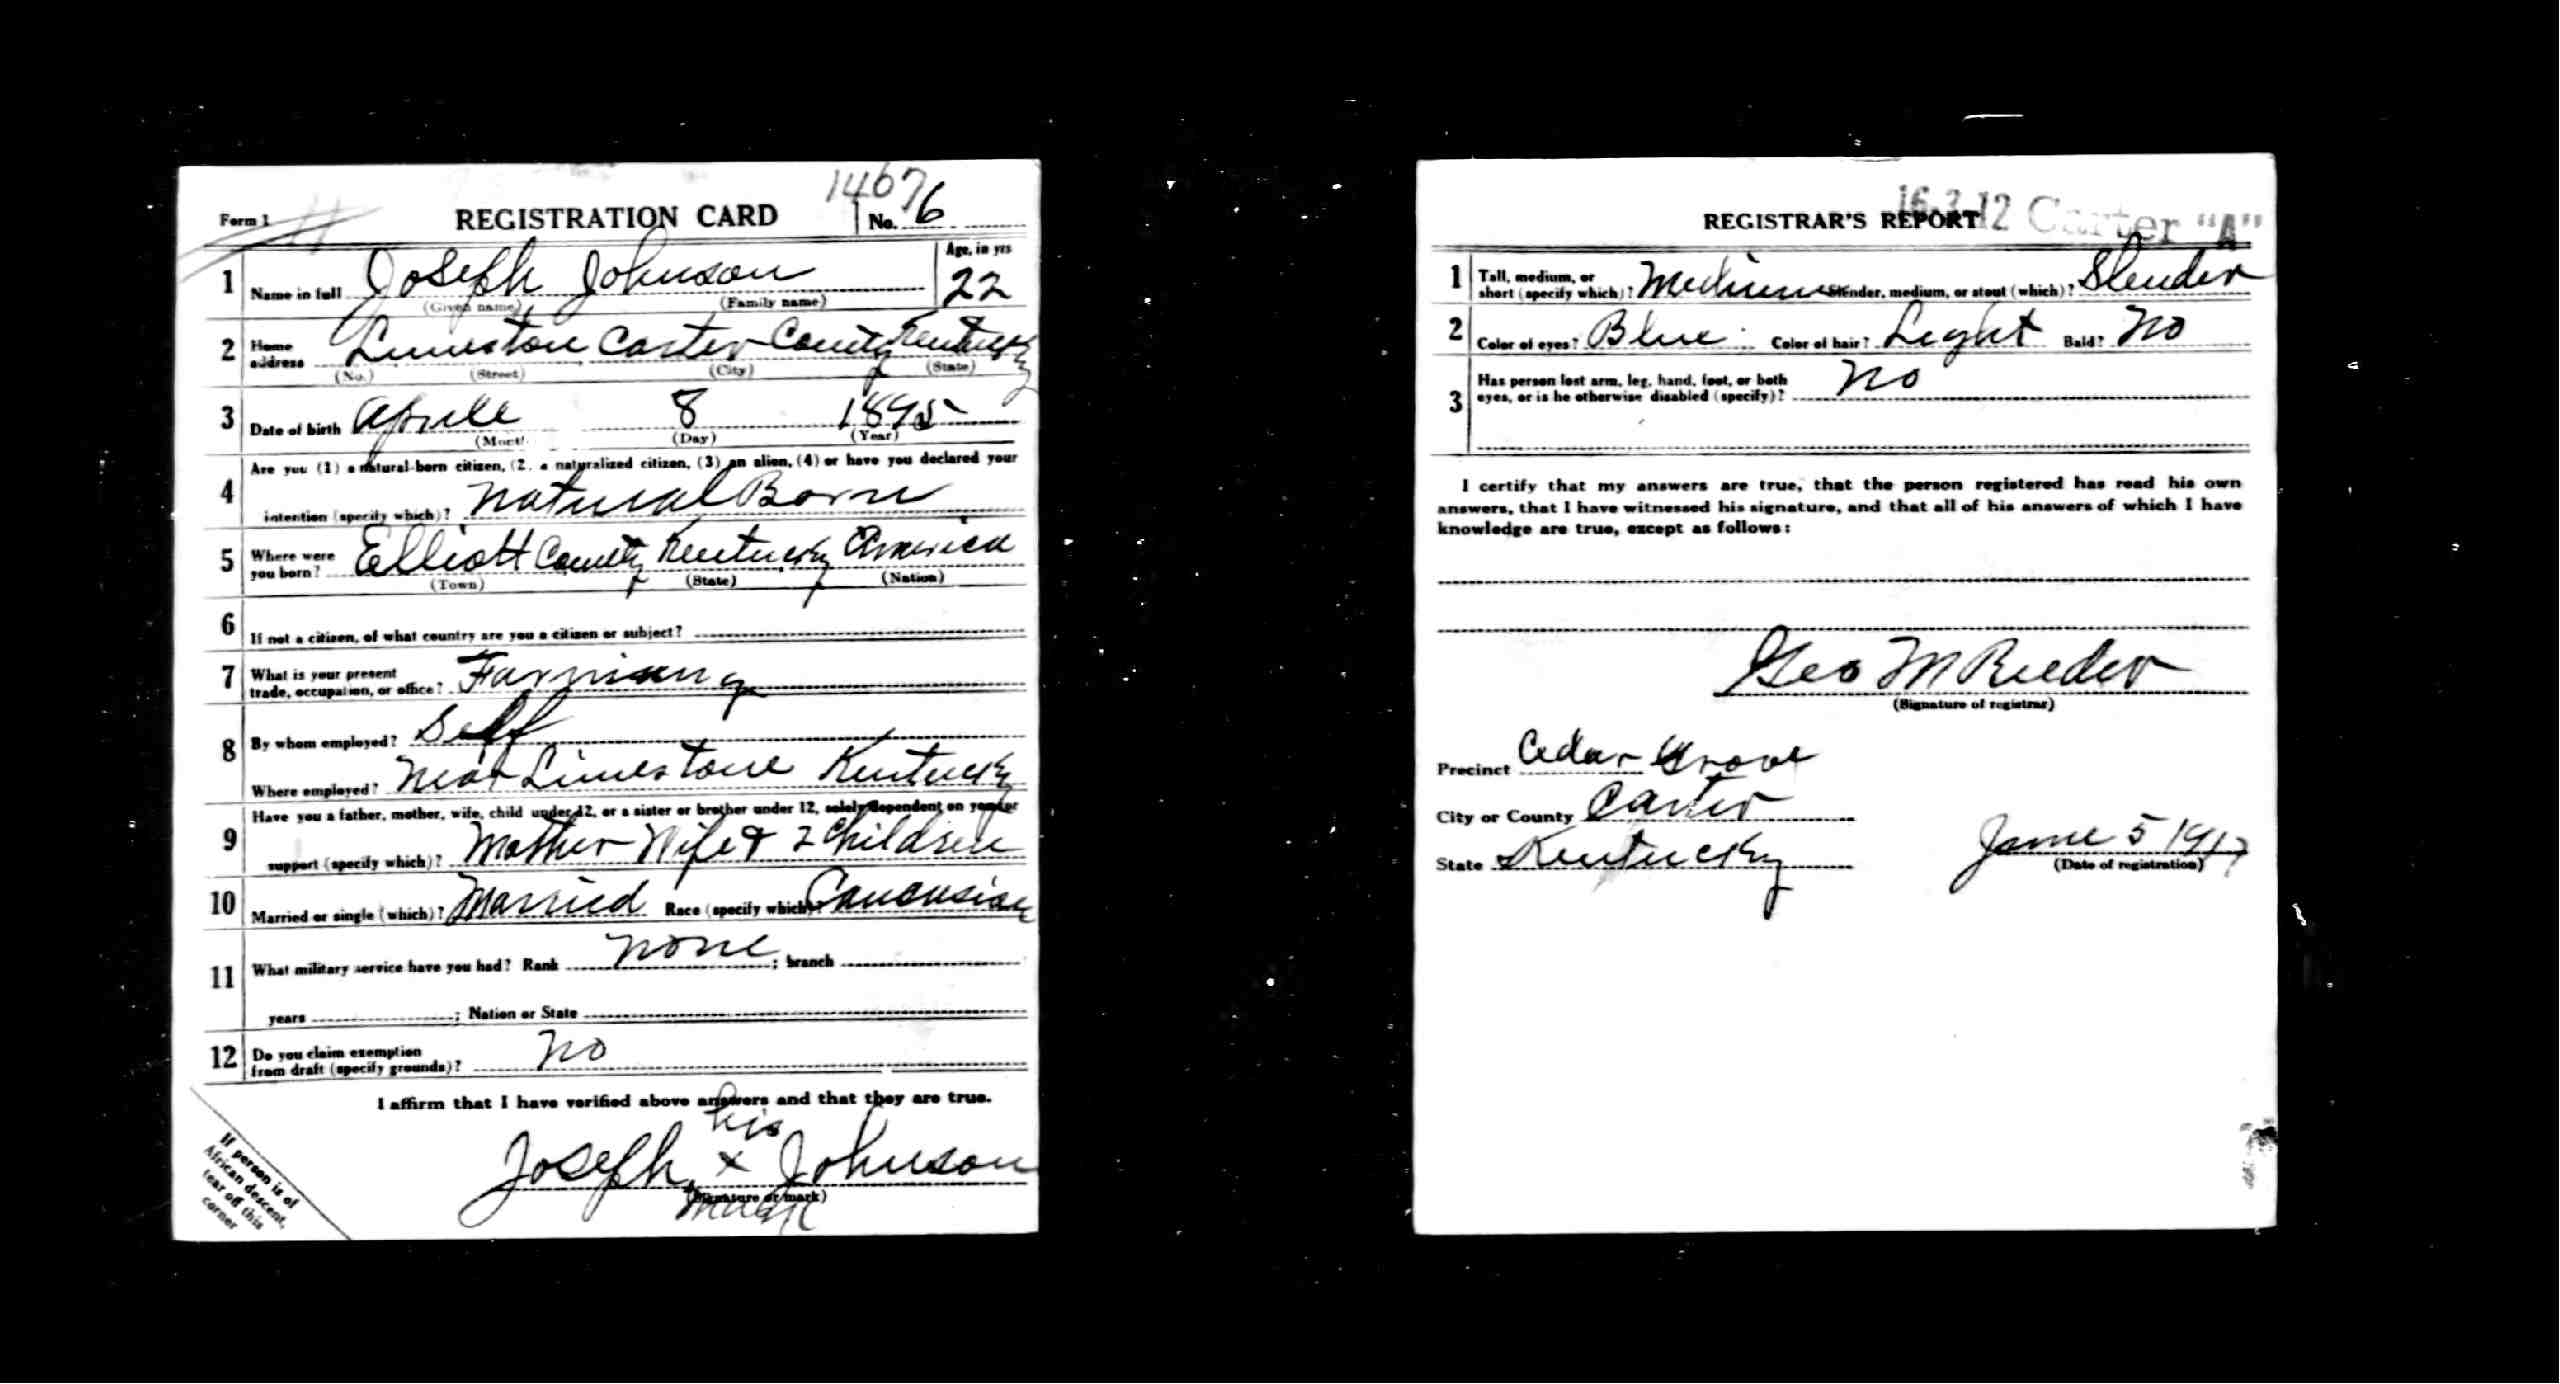 1467
Form 1 REGISTRATION CARD No. 6
Age, in yrs
1 Name in full Joseph Johnson 22
(Given name) (Family name)
2 Home address Limestone Carter County Kentucky
(No.) (Street) (City) (State)
3 Date of birth Aprile 8 1895
(Month) (Day) (Year)
Are you (1) a natural-born citizen, (2) a naturalized citizen, (3) an alien, (4) or have you declared your
4 intention (specify which)? Natural Born
5 Where were you born? Elliott County Kentucky America
(Town) (State) (Nation)
6 If not a citizen, of what country are you a citizen or subject?
7 What is your present trade, occupation, or office? Farming
8 By whom employed? Self
Where employed? Near Limestone Kentucky
Have you a father, mother, wife, child under 12, or a sister or brother under 12, solely dependent on you for
9 support (specify which)? Mother Wife & 2 Children
10 Married or single (which)? Married Race (specify which)? Caucusian
11 What military service have you had? Rank none ; branch
years ; Nation or State
12 Do you claim exemption from draft (specify grounds)? No
I affirm that I have verified above answers and that they are true.
his
Joseph x Johnson
(Signature or mark)
mark
If person is of
African descent,
tear off this
corner
16-3-12 Carter "A"
REGISTRAR'S REPORT
1 Tall, medium, or short (specify which)? Medium Slender, medium, or stout (which)? Slender
2 Color of eyes? Blue Color of hair? Light Bald? No
3 Has person lost arm, leg, hand, foot, or both eyes, or is he otherwise disabled (specify)? No
I certify that my answers are true, that the person registered has read his own
answers, that I have witnessed his signature, and that all of his answers of which I have
knowledge are true, except as follows:
Geo M Rieder
(Signature of registrar)
Precinct Cedar Grove
City or County Carter
State Kentucky June 5 1917
(Date of registration)